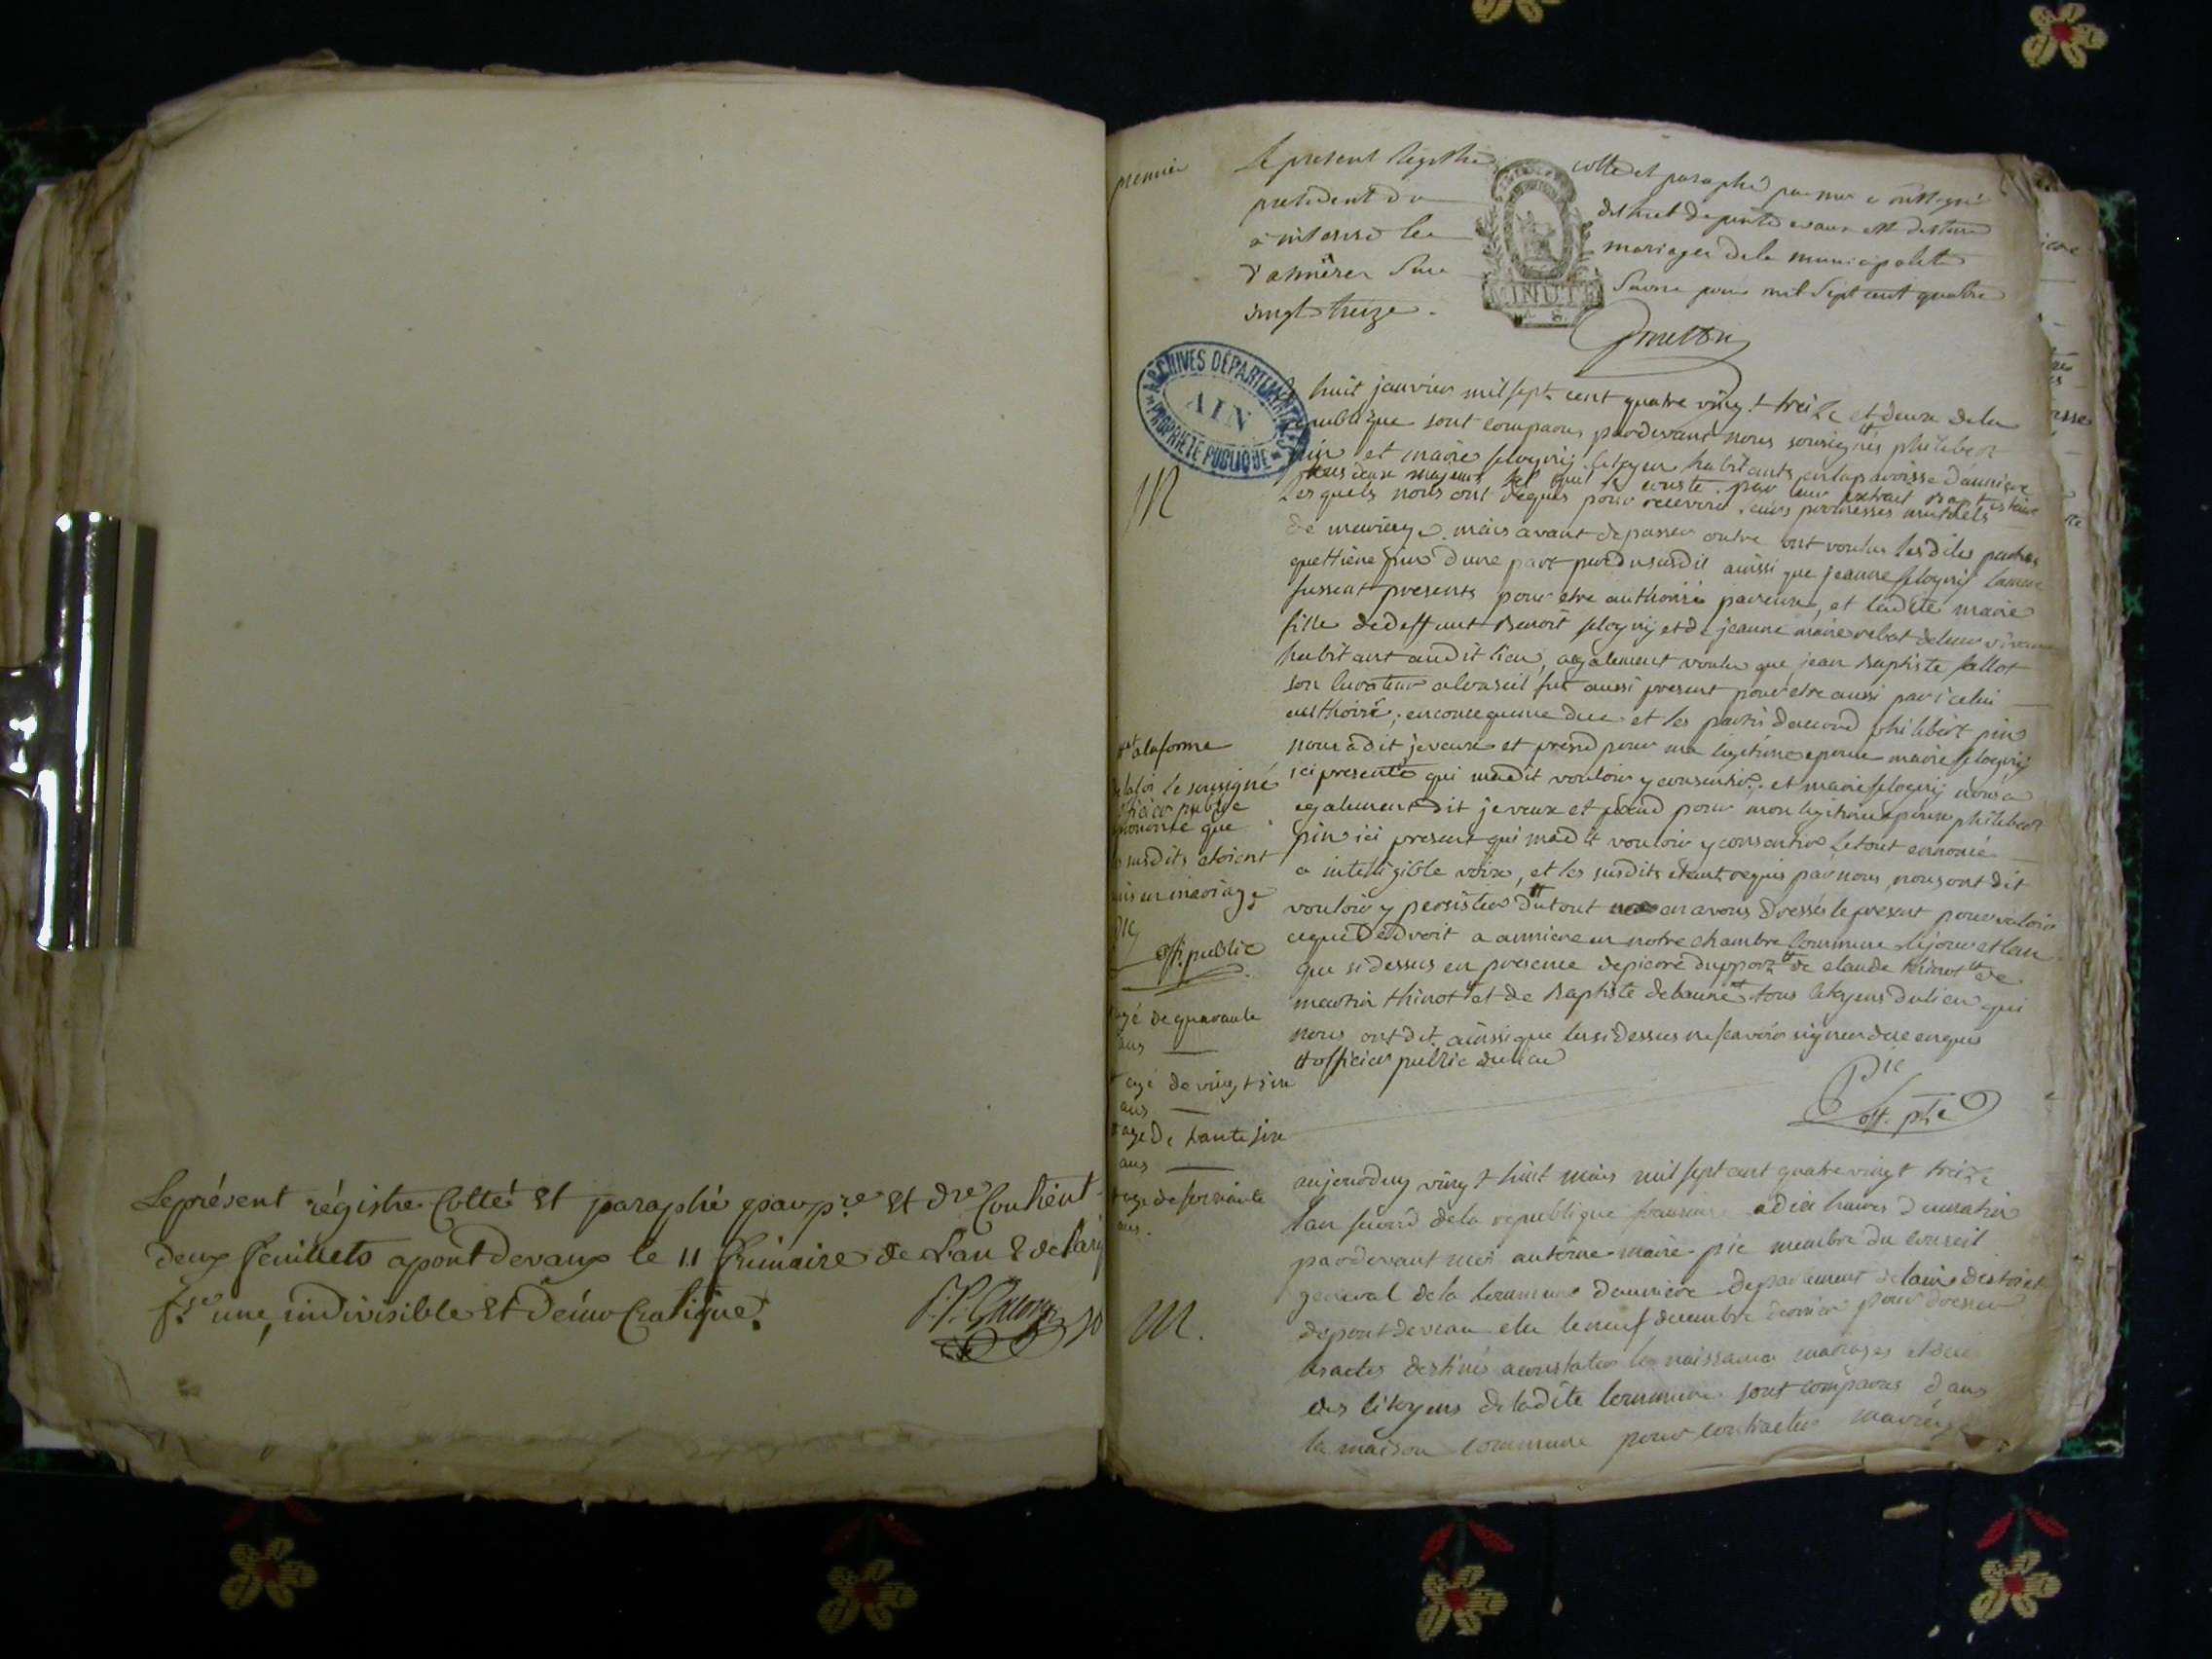 Le présent régistre Cotté et paraphé par p.re et dre Contient
deux feuillets a pont devaux le 11 frimaire de L'an 2 de la rép
f.se une, indivisible et démocratique.
premier
Le present registre cotté et paraphé par moi soussigné
president du district de pontdevaux est destiné
a inscrire les mariages de la municipalité
d'asnieres sur Saone pour mil sept cent quatre
vingt treize.
MINUTE
ARCHIVES DÉPARTEMENTALES
AIN
PROPRIÉTÉ PUBLIQUE
huit janvier mil sept cent quatre vingt treize et deux de la
republique sont comparus pardevant nous sousignés philibert
pin et marie citoyens habitants en la paroisse d'anniere
tous deux majeurs tel qu'il conste par leur extrait baptistaire
Lesquels nous ont requis pour recevoir leurs promesses mutuels
de mariage. mais avant de passer outre ont voulus les dites parties
pin d'une part pere du susdit ainsi que jeanne
fussent presents pour etre authorisé par eux, et ladite marie
fille de deffunt Benoit et de jeanne marie de leur vivant
habitant audit lieu, également voulu que jean Baptiste fallot
son fut aussi present pour etre aussi par icelui
authorisé; en consequence due et les partis d'accord philibert pin
nous a dit je veux et prend pour ma legitime epouse marie
ici presente qui m'a dit vouloir y consentir, et marie nous a
egalement dit je veux et prend pour mon legitime epoux philibert
pin ici present qui m'a dit vouloir y consentir le tout ennoncé
a inteligible voix, et les susdits étant requis par nous, nous ont dit
vouloir y persister du tout en avons dressés le present pour valoir
ce que de droit a anniere en notre chambre Commune le jour et l'an
que si dessus en presence de piere dupport de claude thinot de
martin thinot et de Baptiste tous citoyens du lieu qui
nous ont dit ainsi que les si dessus ne scavoir signer de ce enquis
officier public du lieu
Pic
off. plic
M
a la forme
de la loi le sousigné
officier public
prononce que
les susdits etoient
unis en mariage
Pic
off. public
agé de quarante
ans
agé de vingt six
ans
age de trante six
ans
age de soixante
ans.
M.
aujourdhuy vingt huit mars mil sept cent quatre vingt treize
l'an second de la republique francaise a dix heures du matin
pardevant moi antoine marie pic membre du conseil
general de la commune d'anniere departement de lain district
de pont de veau elu le neuf decembre dernier pour dresser
les actes destinés a constater les naissances mariages et deces
des citoyens de ladite commune sont comparus dans
la maison commune pour contracter mariage